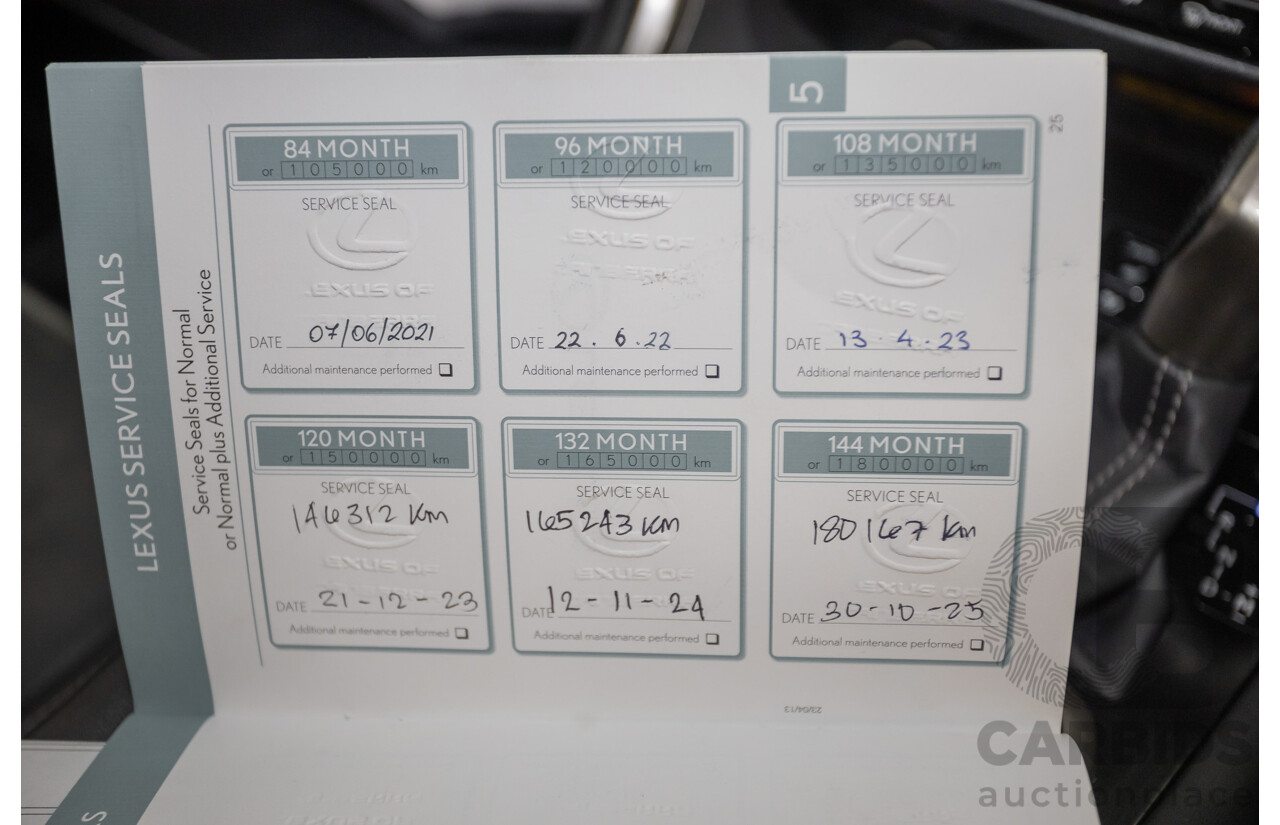 LEXUS SERVICE SEALS
Service Seals for Normal
or Normal plus Additional Service
5
25
84 MONTH
or 105000 km
SERVICE SEAL
LEXUS OF
DATE 07/06/2021
Additional maintenance performed
96 MONTH
or 120000 km
SERVICE SEAL
LEXUS OF
DATE 22 . 6 . 22
Additional maintenance performed
108 MONTH
or 135000 km
SERVICE SEAL
LEXUS OF
DATE 13 . 4 . 23
Additional maintenance performed
120 MONTH
or 150000 km
SERVICE SEAL
146312 km
LEXUS OF
DATE 21 - 12 - 23
Additional maintenance performed
132 MONTH
or 165000 km
SERVICE SEAL
165243 km
LEXUS OF
DATE 12 - 11 - 24
Additional maintenance performed
144 MONTH
or 180000 km
SERVICE SEAL
180167 km
LEXUS OF
DATE 30 - 10 - 25
Additional maintenance performed
CARBIDS
auctionplace